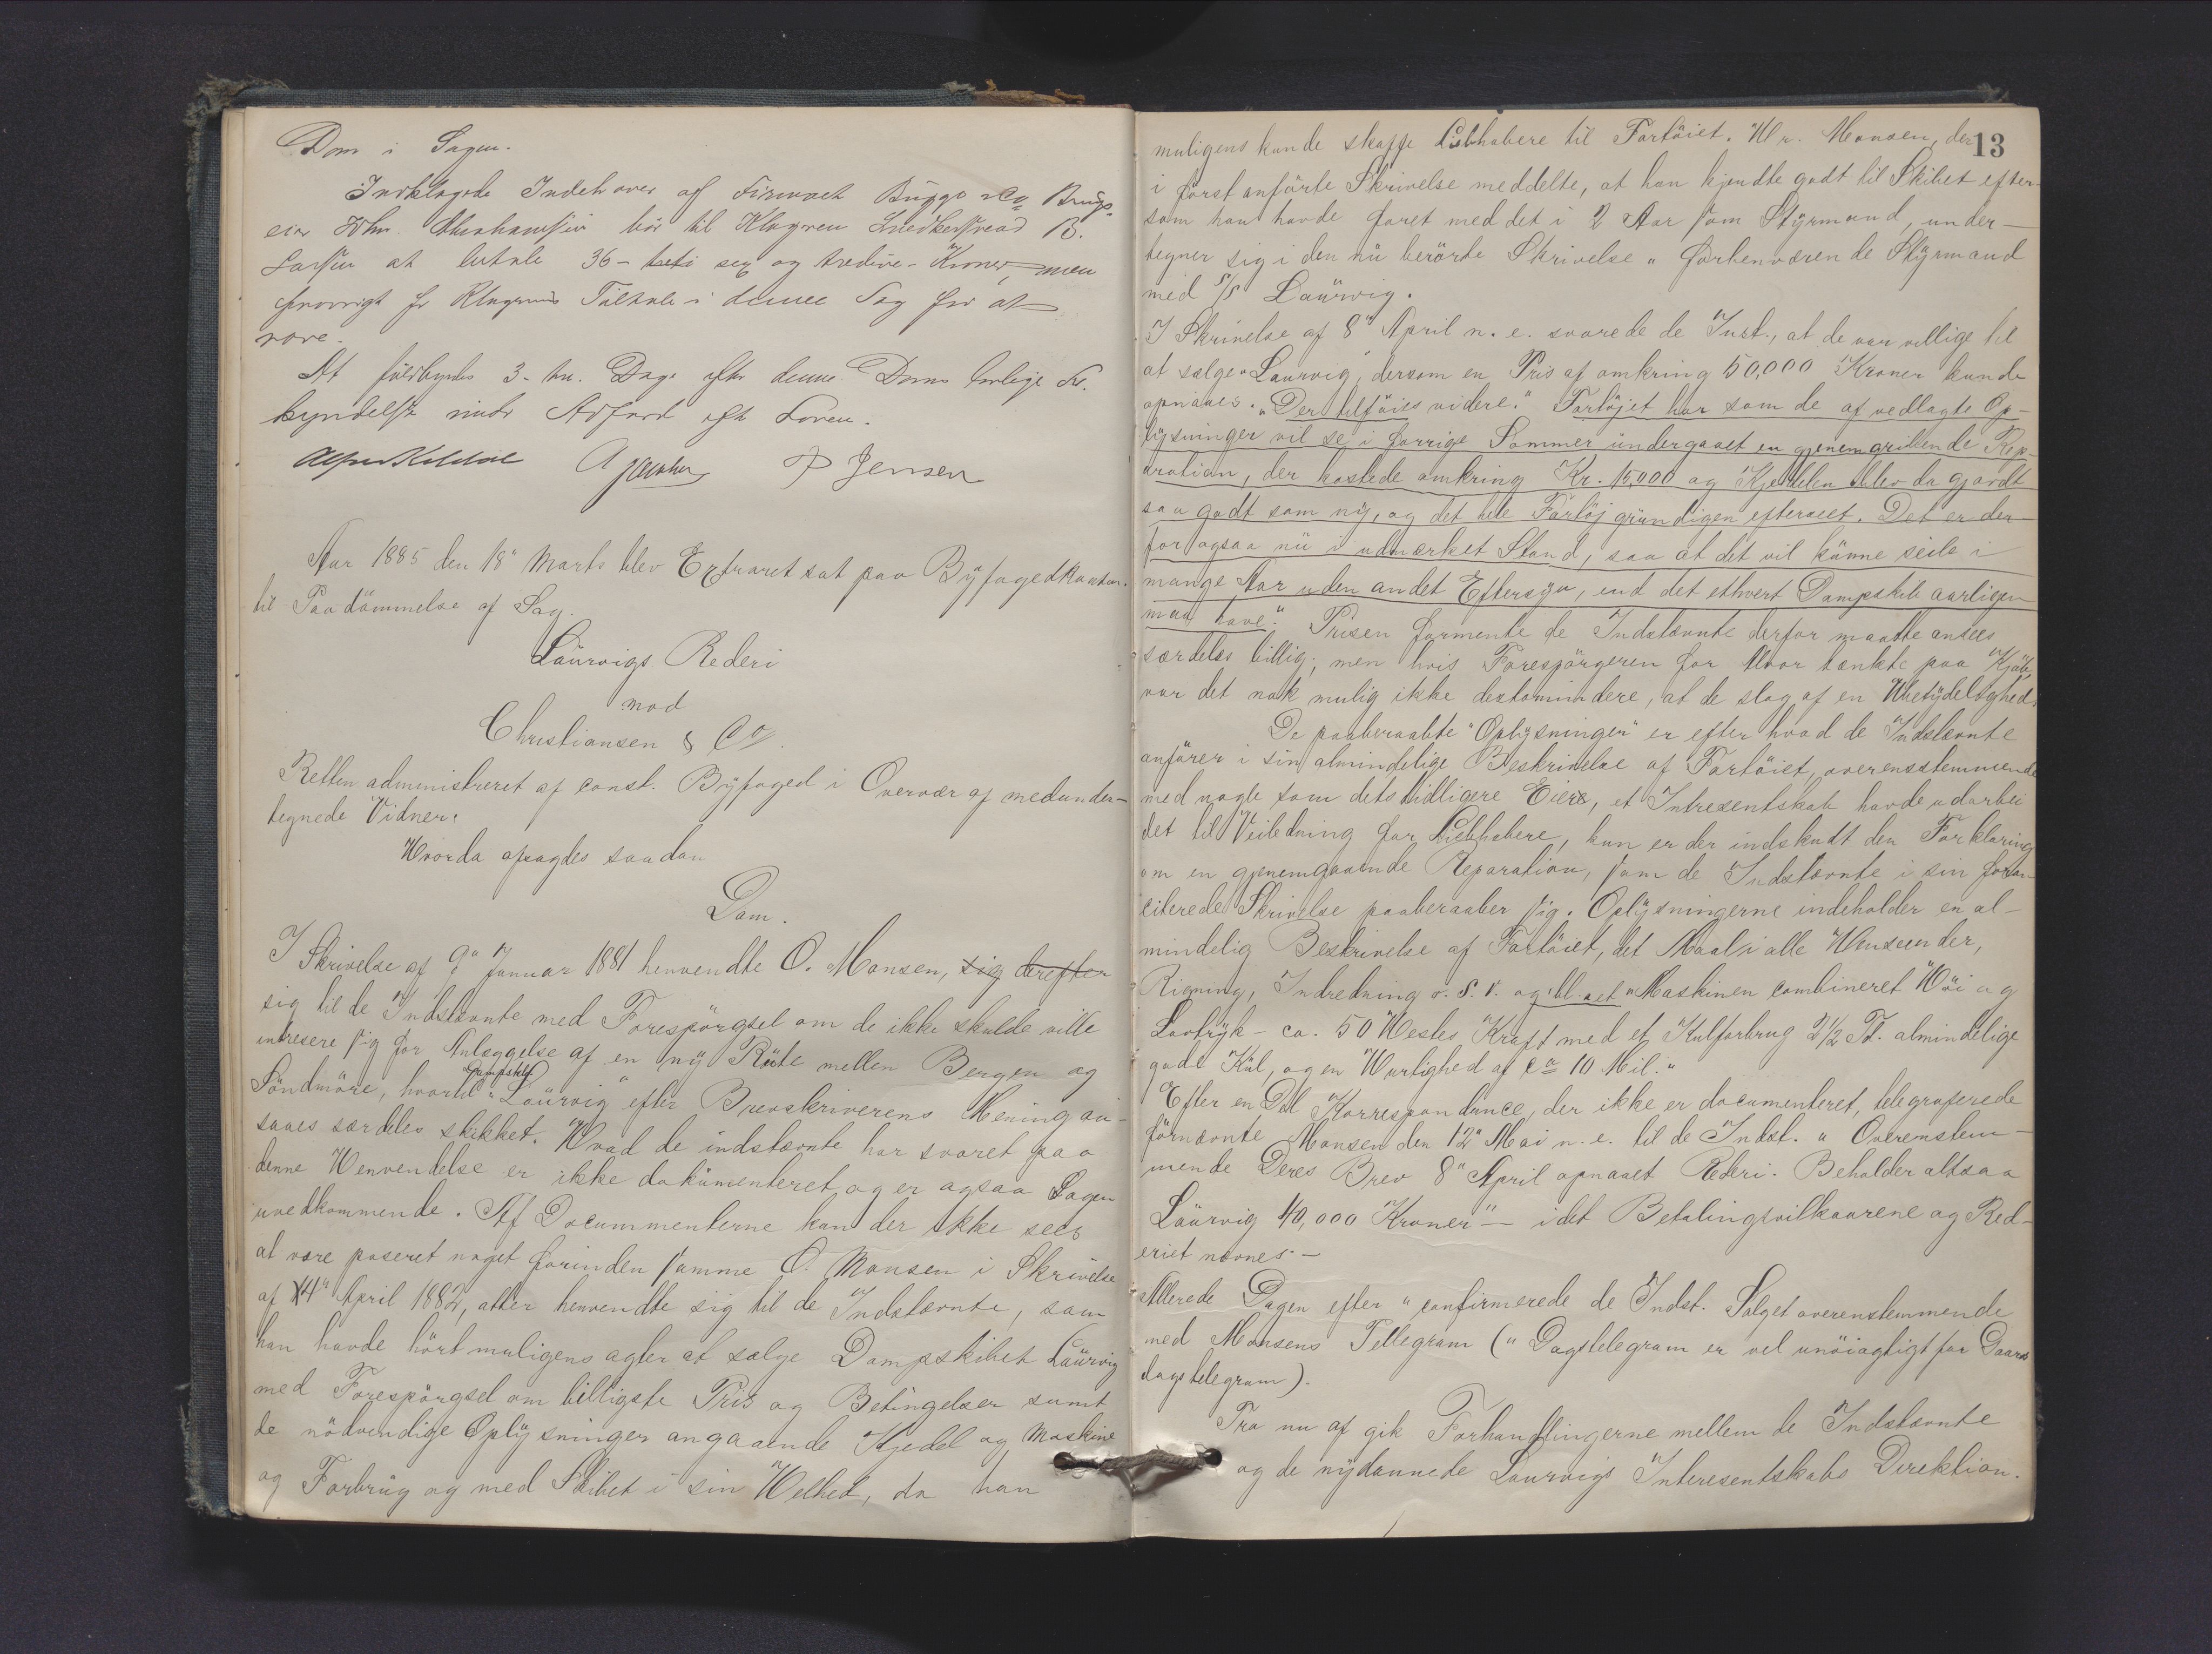 Dom i Sagen.
Indklagede Indehaver af Firmaet Brügge & Co Brugs-
eier Joh. Abrahamsen bör til Klageren Snedkersvend B.
Larsen at betale 36 - sex og tredive - Kroner, men
forövrigt for Klagerens Tiltale i denne Sag fri at
være.
At fuldbyrdes 3 - tre Dage efter denne Doms lovlige For-
kyndelse under Adfærd efter Loven.
P Jensen
Aar 1885 den 18" Marts blev Extraret sat paa Byfogedkontor.
til Paadömmelse af Sag.
Laürvigs Rederi
mod
Christiansen & Co.
Retten administreret af const. Byfoged i Overvær af medunder-
tegnede Vidner.
Hvorda afsagdes saadan
Dom.
I Skrivelse af 9" Januar 1881 henvendte O. Monsen, sig derefter
sig til de Indstævnte med Forespörgsel om de ikke skulde ville
intresere sig for Anlæggelse af en ny Rüte mellem Bergen og
Söndmöre, hvortil Dampskib "Laürvig" efter Brevskriverens Mening an-
saaes særdeles skikket. Hvad de indstævnte har svaret paa
denne Henvendelse er ikke dokümenteret og er ogsaa Sagen
uvedkommende. Af Docummenterne kan der ikke sees
at være paseret noget forinden samme O. Monsen i Skrivelse
af 4" April 1882, atter henvendte sig til de Indstævnte, som
han havde hört muligens agter at sælge Dampskibet Laürvig
med Forespörgsel om billigste Pris og Betingelser samt
de nödvendige Oplysninger angaaende Kjedel og Maskine
og Forbrüg og med Skibet i sin Helhed, da han
13
muligens kunde skaffe Liebhabere til Fartöiet. Hr. Monsen, der
i först anförte Skrivelse meddelte, at han kjendte godt til Skibet efter-
som han havde faret med det i 2 Aar som Styrmand, under-
tegner sig i den nü berörte Skrivelse "forhenværende Styrmand
med S/S Laürvig.
I Skrivelse af 8" April n. e. svarede de Inst., at de var villige til
at sælge "Laurvig", dersom en Pris af omkring 50,000 Kroner kunde
opnaaes. "Der tilföies videre." Fartöjet har som de af vedlagte Op-
lysninger vil se, i forrige Sommer ündergaaet en gjenemgribende Rep-
aration, der kostede omkring Kr. 15,000 og Kjedelen blev da gjordt
saa godt som ny, og det hele Fartöj gründigen efterseet. Det er der-
for ogsaa nü i udmærket Stand, saa at det vil künne seile i
mange Aar uden andet Eftersyn, end det ethvert Dampskib aarligen
maa have." Prisen formente de Indstævnte derfor maatte ansees
særdeles billig; men hvis Forespörgeren for Alvor tænkte paa Kjöb,
var det nok mulig ikke destomindere, at de slog af en Ubetydelighed.
De paaberaabte "Oplysninger" er efter hvad de Indstævnte
anförer i sin almindelige Beskrivelse af Fartöiet, overensstemmende
med nogle som dets tidligere Eiere, et Intresentskab havde udarbei
det til Veiledning for Liebhabere, kun er der indskudt den Forklaring
om en gjenemgaaende Reparation, som de Indstævnte i sin foran-
citerede Skrivelse paaberaaber sig. Oplysningerne indeholder en al-
mindelig Beskrivelse af Fartöiet, det Maal i alle Henseender,
Rigning, Indredning o. s. v. og bl. aet "Maskinen combineret Höi og
Lavtryk - ca. 50 Hestes Kraft med et Kulforbrug 2 1/2 Td. almindelige
gode Kül, og en Hurtighed af ca 10 Mil."
Efter en Del Korrespondance, der ikke er documenteret, telegraferede
förnævnte Monsen den 12" Mai n. e. til de Indst. "Overenstem-
mende Deres Brev 8" April opnaaet Rederi. Beholder altsaa
Laürvig 40,000 Kroner" - idet Betalingsvilkaarene og Red-
eriet nævnes. -
Allerede Dagen efter "confirmerede de Indst. Salget overenstemmende
med Monsens Tellegram ("Dagstelegram er vel unöiagtigt for Gaars
dagstelegram).
Fra nu af gik Forhandlingerne mellem de Indstævnte
og de nydannede Laurvigs Interesentskabs Direktion.